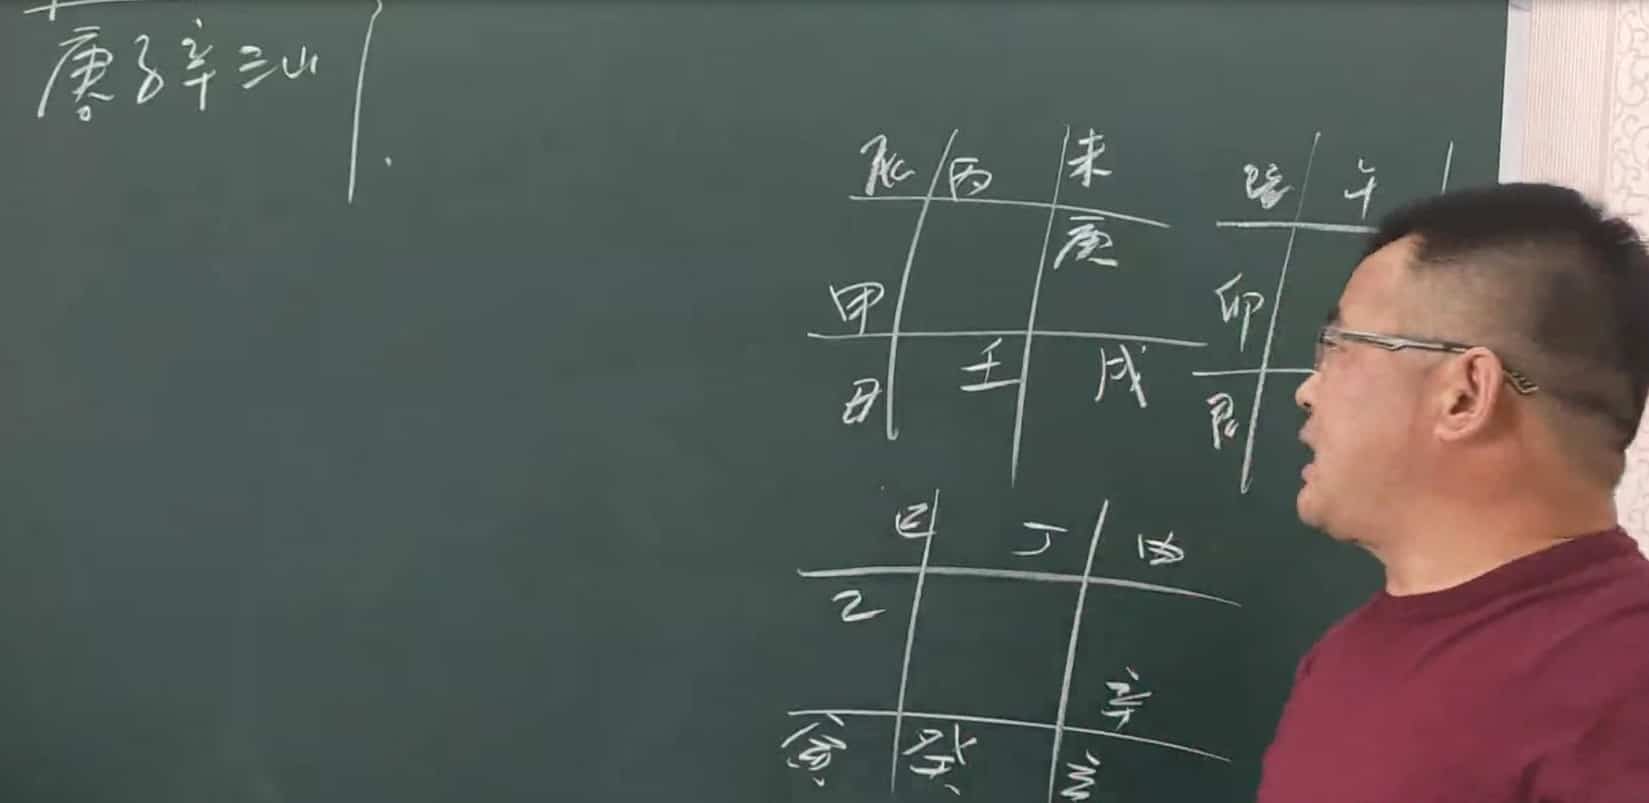 庚子辛三山
辰 丙 未
庚
甲
丑 壬 戌
巽 午
卯
艮
巳 丁 酉
乙
辛
寅 癸 亥